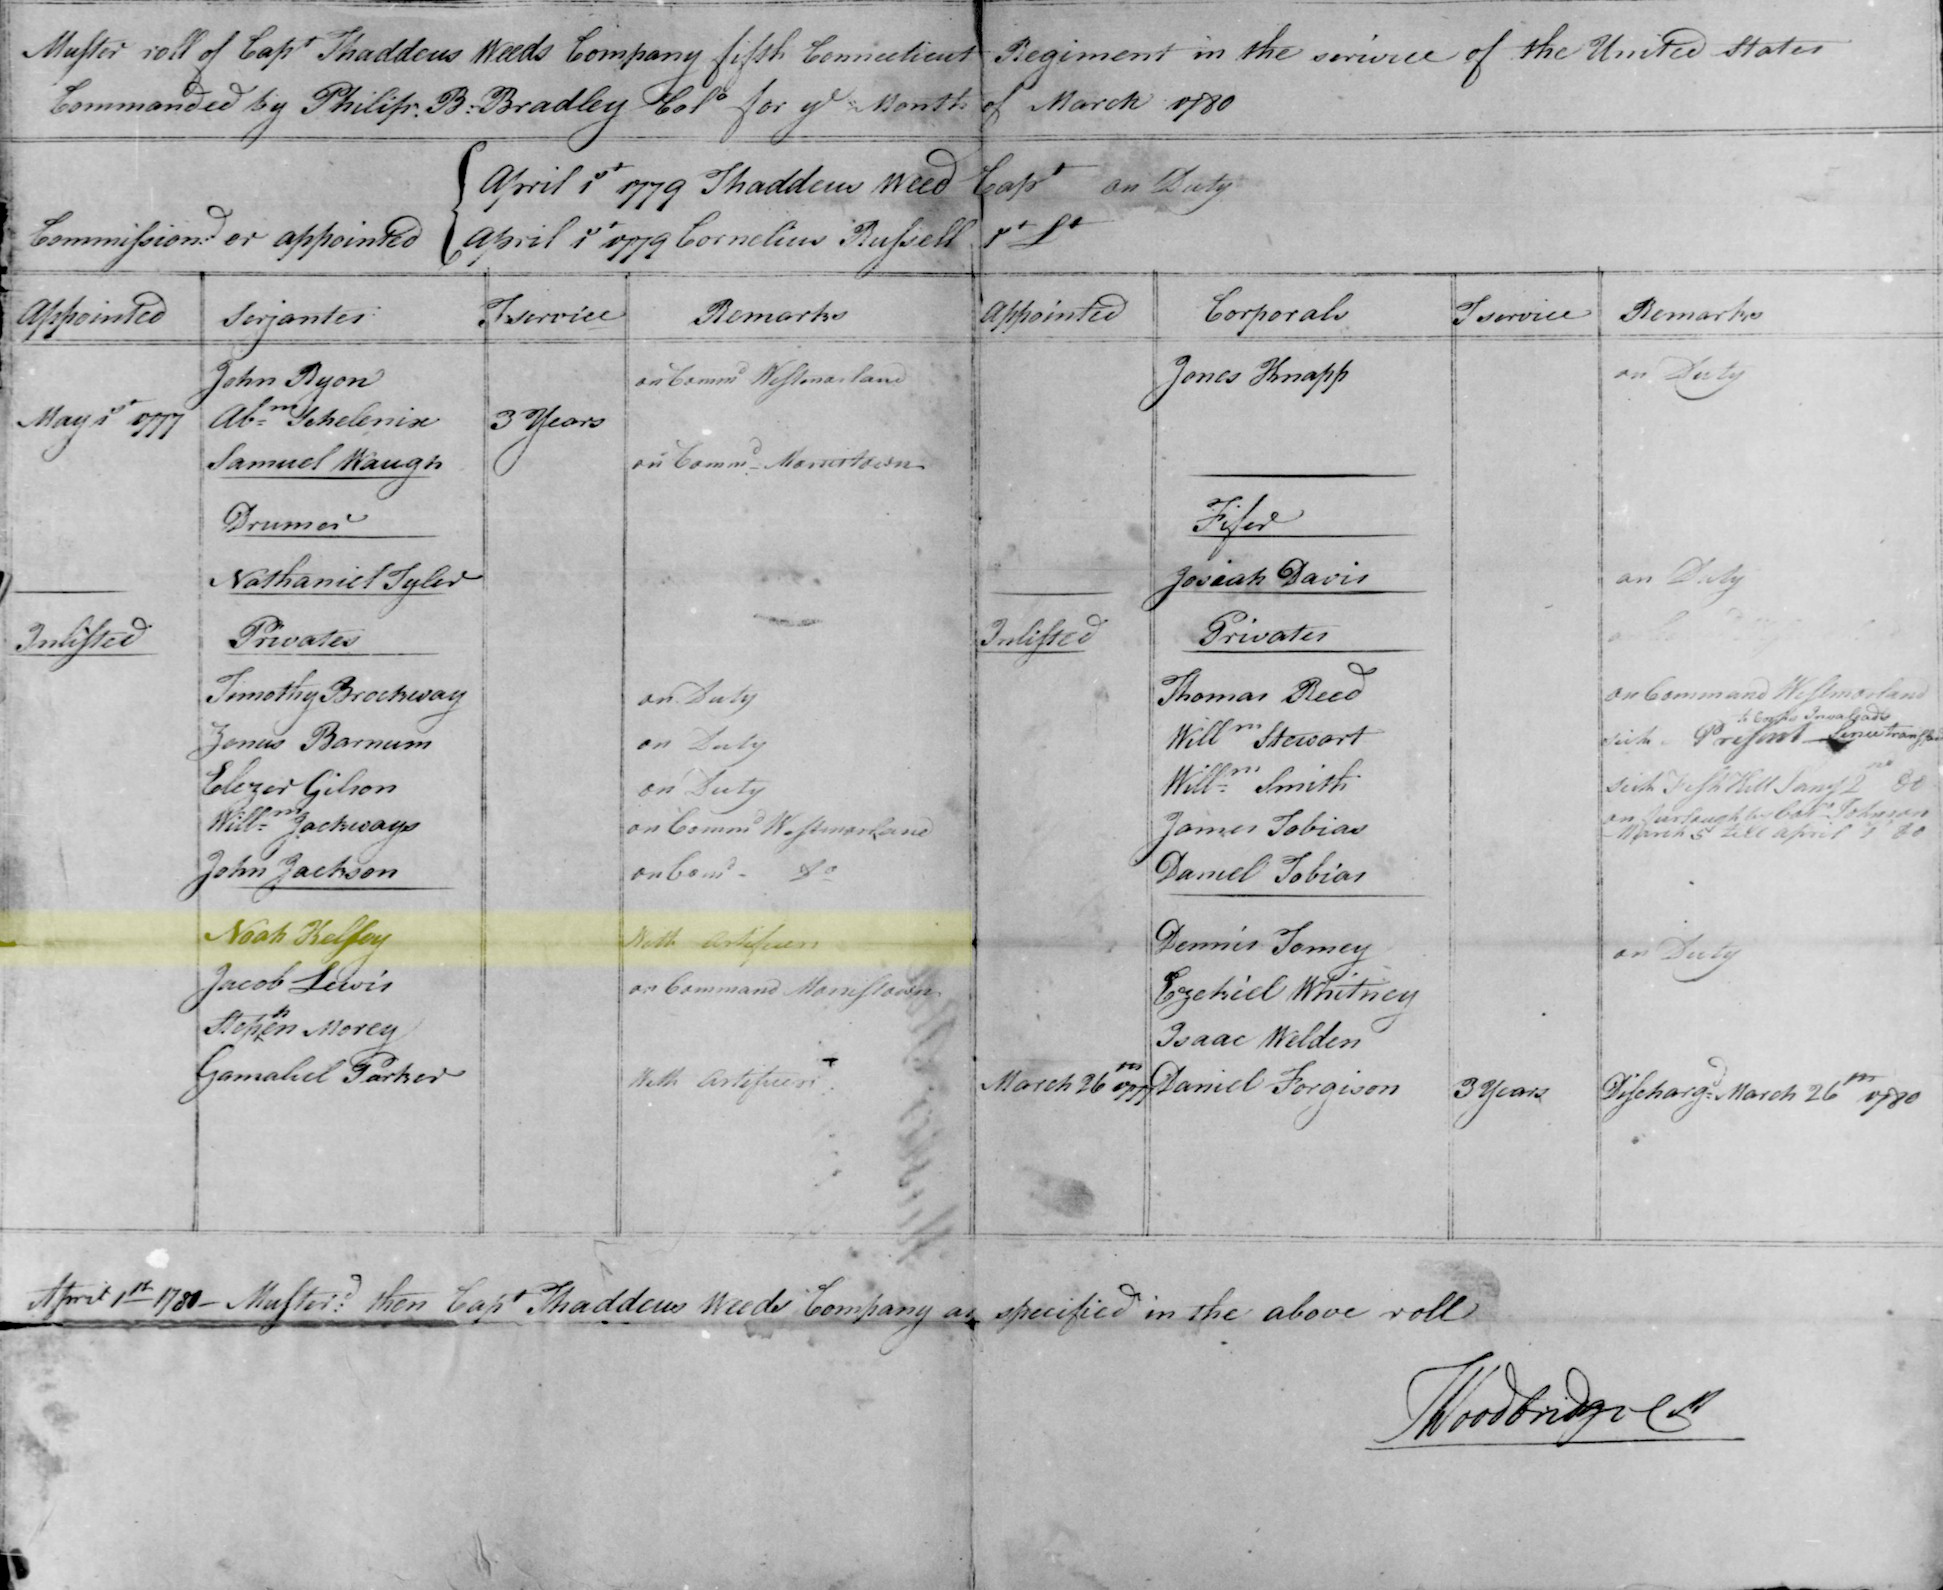 Muster roll of Capt Thaddeus Weeds Company fifth Connecticut Regiment in the serivice of the United States
Commanded by Philip. B. Bradley Colo for ye Month of March 1780
April 1st 1779 Thaddeus Weed Capt on Duty
Commission.d or appointed April 1st 1779 Cornelius Russell 1st Lt
Appointed Serjantes T service Remarks Appointed Corporals T service Remarks
John Ryon on Commd Westmorland Jones Knapp on Duty
May 1st 1777 Abm Schelenix 3 Years
Samuel Waugh on Commd Morristown
Drumer Fifer
Nathaniel Tyler Josiah Davis on Duty
Inlisted Privates Inlisted Privates
Timothy Brockway on Duty Thomas Reed on Command Westmorland
to Corps Invaleads
Zenas Barnum on Duty Willm Stewart sick Present Since transfd
Elezer Gilson on Duty Willm Smith sick Fish Kill Jany 2 80
Willm Jackways on Commd Westmorland James Tobias on furlough by Coll Johnson
March 5 till April 1 80
John Jackson on Comd Do Daniel Tobias
Noah Kelsey With Artificers Dennis Tomey on Duty
Jacob Lewis on Command Morristown Ezekiel Whitney
Stephen Morey Isaac Welden
Gamaliel Parker With Artificers March 26th 1777 Daniel Forgison 3 Years Dischargd March 26th 1780
April 1st 1780 – Muster.d then Capt Thaddeus Weeds Company as specified in the above roll
Woodbridge CM